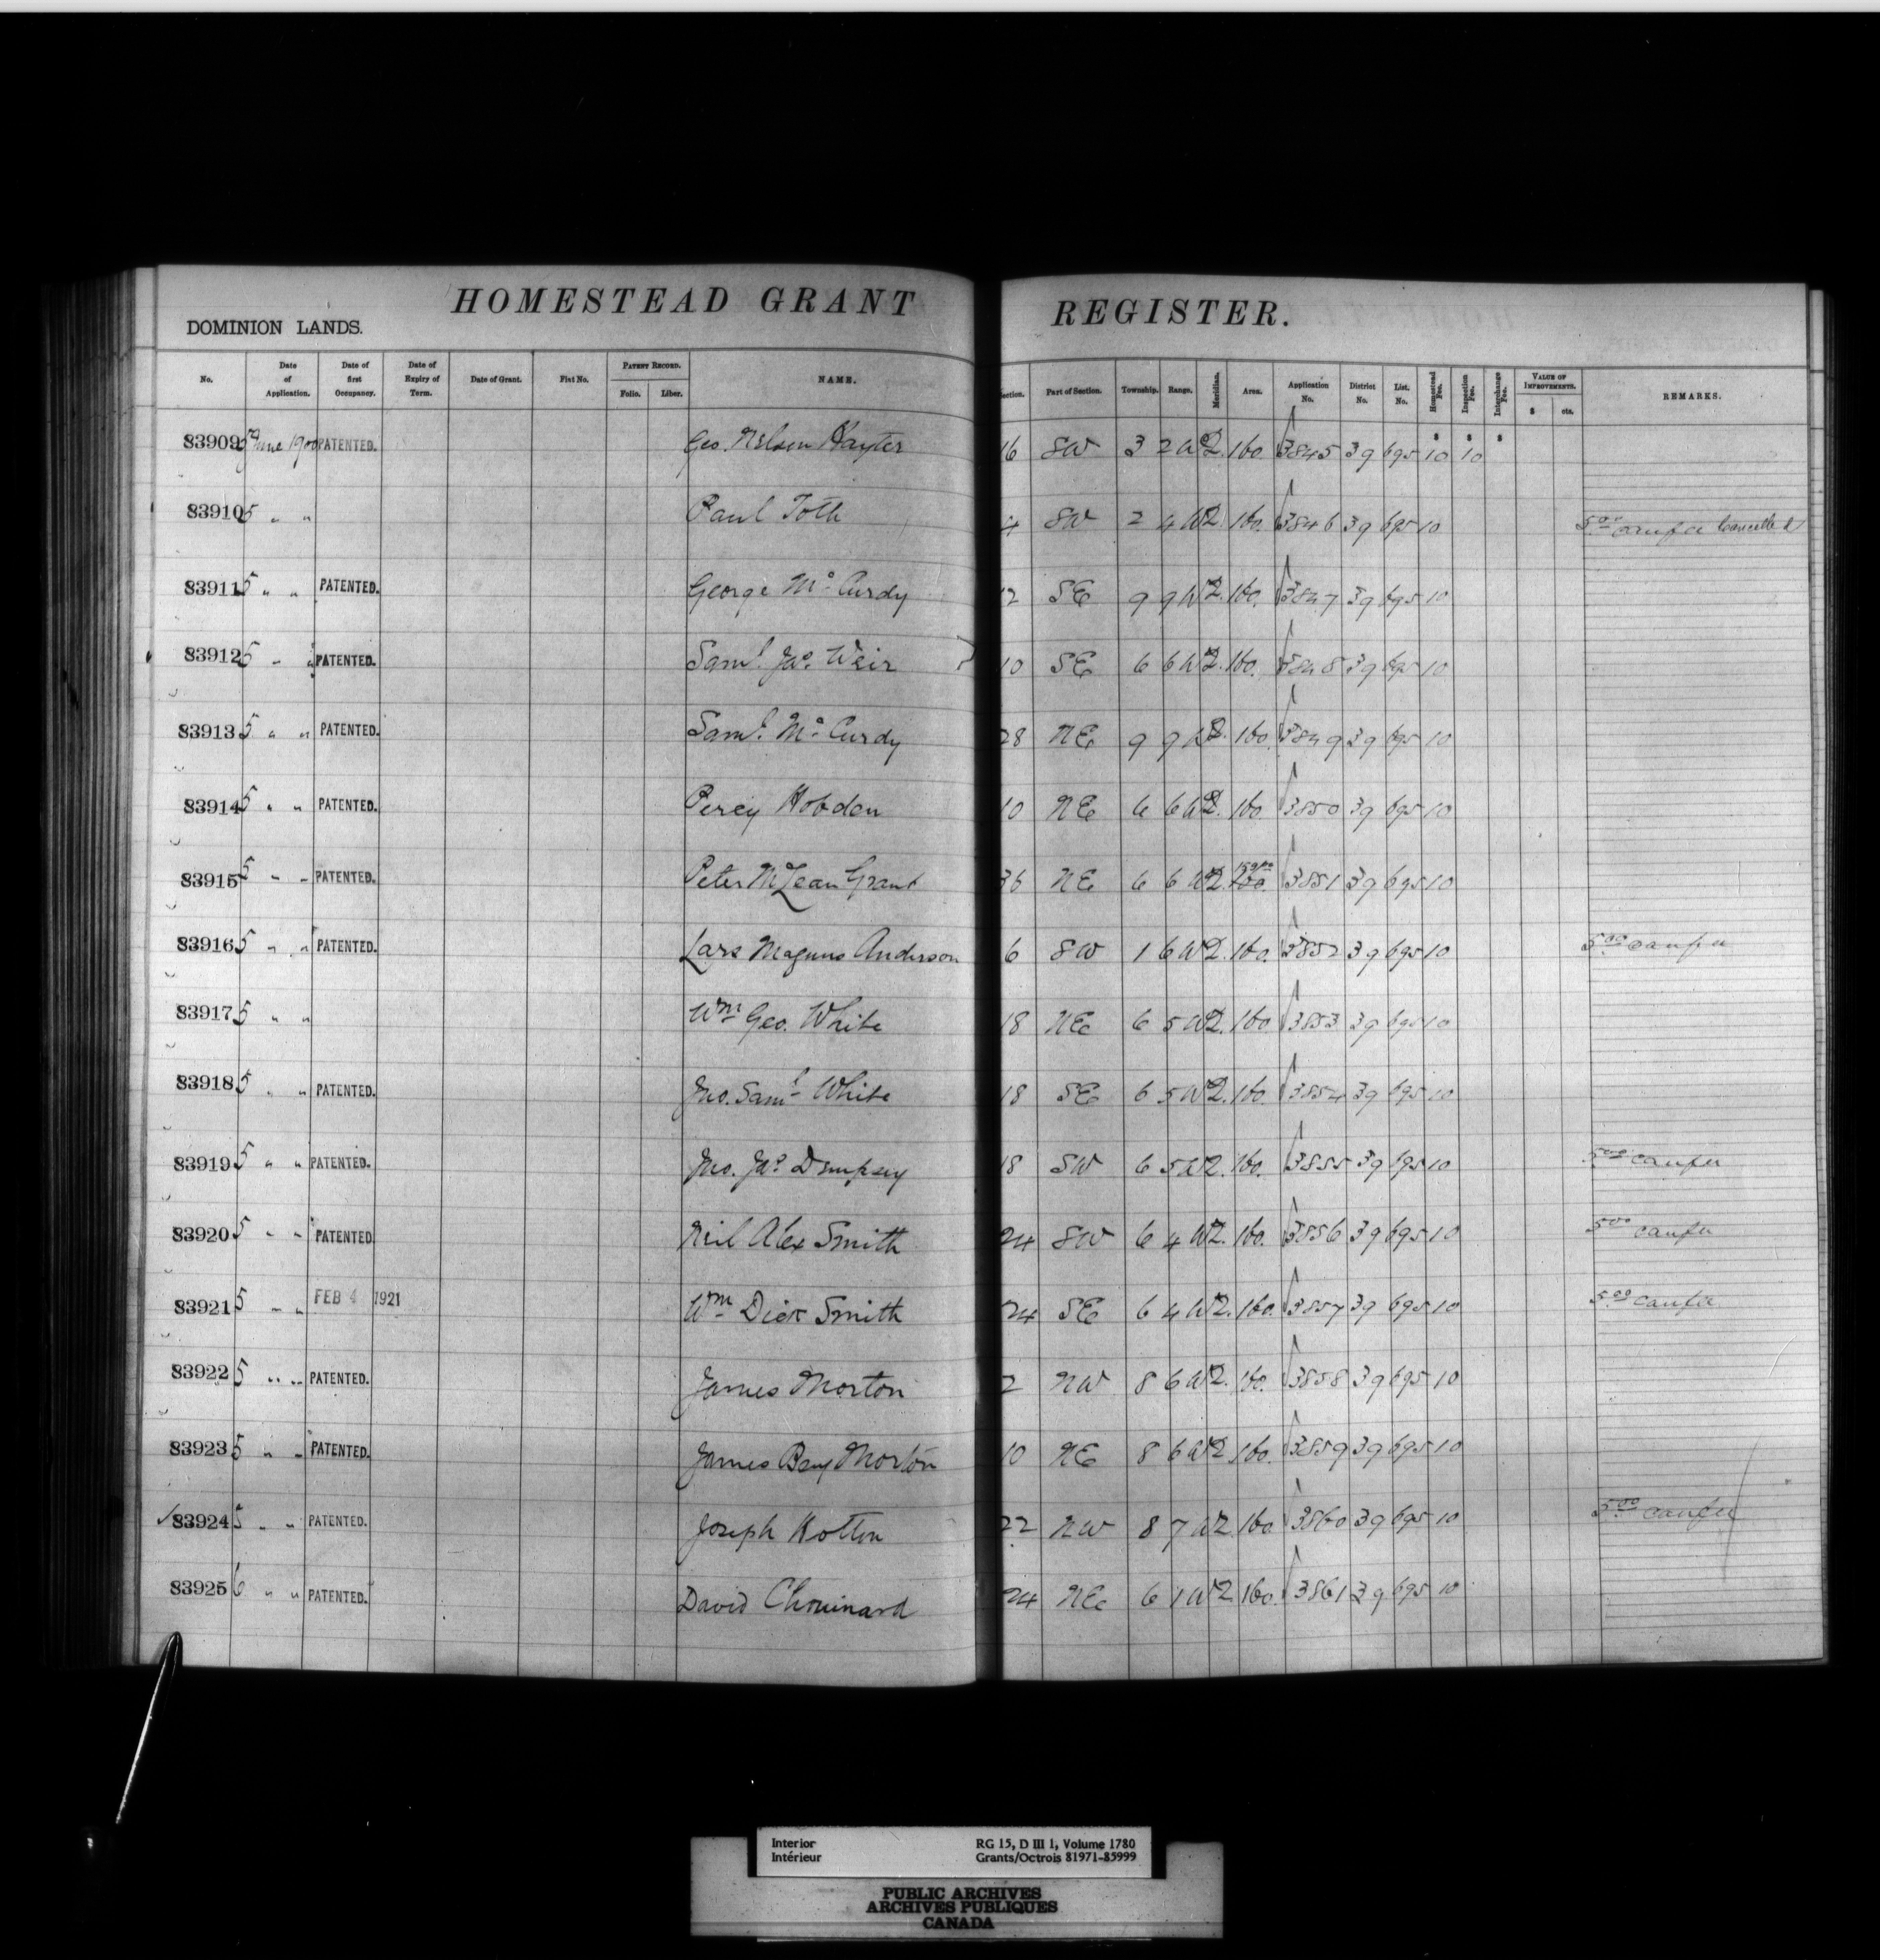 HOMESTEAD GRANT REGISTER.
DOMINION LANDS.
No. Date of Application. Date of first Occupancy. Date of Expiry of Term. Date of Grant. Fiat No. PATENT RECORD. Folio. Liber. NAME. Section. Part of Section. Township. Range. Meridian. Area. Application No. District No. List. No. Homestead Fee. Inspection Fee. Interchange Fee. VALUE OF IMPROVEMENTS. $ cts. REMARKS.
83909 5 June 1900 PATENTED. Geo. Nelson Hayter 16 SW 3 2 W2. 160. 3845 39 695 10 10
83910 5 " " Paul Toth 4 SW 2 4 W2. 160. 3846 39 695 10 5.00 canfee Cancelled
83911 5 " " PATENTED. George McCurdy 12 SE 9 9 W2. 160. 3847 39 695 10
83912 5 " " PATENTED. Saml. Jas. Weir 10 SE 6 6 W2. 160. 3848 39 695 10
83913 5 " " PATENTED. Saml. McCurdy 28 NE 9 9 W2. 160. 3849 39 695 10
83914 5 " " PATENTED. Percy Hobden 10 NE 6 6 W2. 160. 3850 39 695 10
83915 5 " " PATENTED. Peter McLean Grant 36 NE 6 6 W2. 160. 3851 39 695 10
83916 5 " " PATENTED. Lars Magnus Anderson 6 SW 1 6 W2. 160. 3852 39 695 10 5.00 canfee
83917 5 " " Wm Geo. White 18 NE 6 5 W2. 160 3853 39 695 10
83918 5 " " PATENTED. Jno. Saml White 18 SE 6 5 W2. 160. 3854 39 695 10
83919 5 " " PATENTED. Jno. Jas. Dempsey 18 SW 6 5 W2. 160. 3855 39 695 10 5.00 canfee
83920 5 " " PATENTED Neil Alex Smith 24 SW 6 4 W2. 160. 3856 39 695 10 5.00 canfee
83921 5 " " FEB 4 1921 Wm Dick Smith 24 SE 6 4 W2. 160. 3857 39 695 10 5.00 canfee
83922 5 " " PATENTED. James Morton 2 NW 8 6 W2. 160. 3858 39 695 10
83923 5 " " PATENTED. James Benj Morton 10 NE 8 6 W2 160. 3859 39 695 10
83924 5 " " PATENTED. Joseph 22 NW 8 7 W2 160 3860 39 695 10 5.00 canfee
83925 6 " " PATENTED. David Chouinard 24 NE 6 1 W2 160. 3861 39 695 10
Interior RG 15, D III 1, Volume 1780
Intérieur Grants/Octrois 81971-85999
PUBLIC ARCHIVES
ARCHIVES PUBLIQUES
CANADA